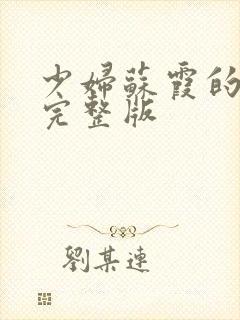 少婦蘇霞的
完整版
劉某連